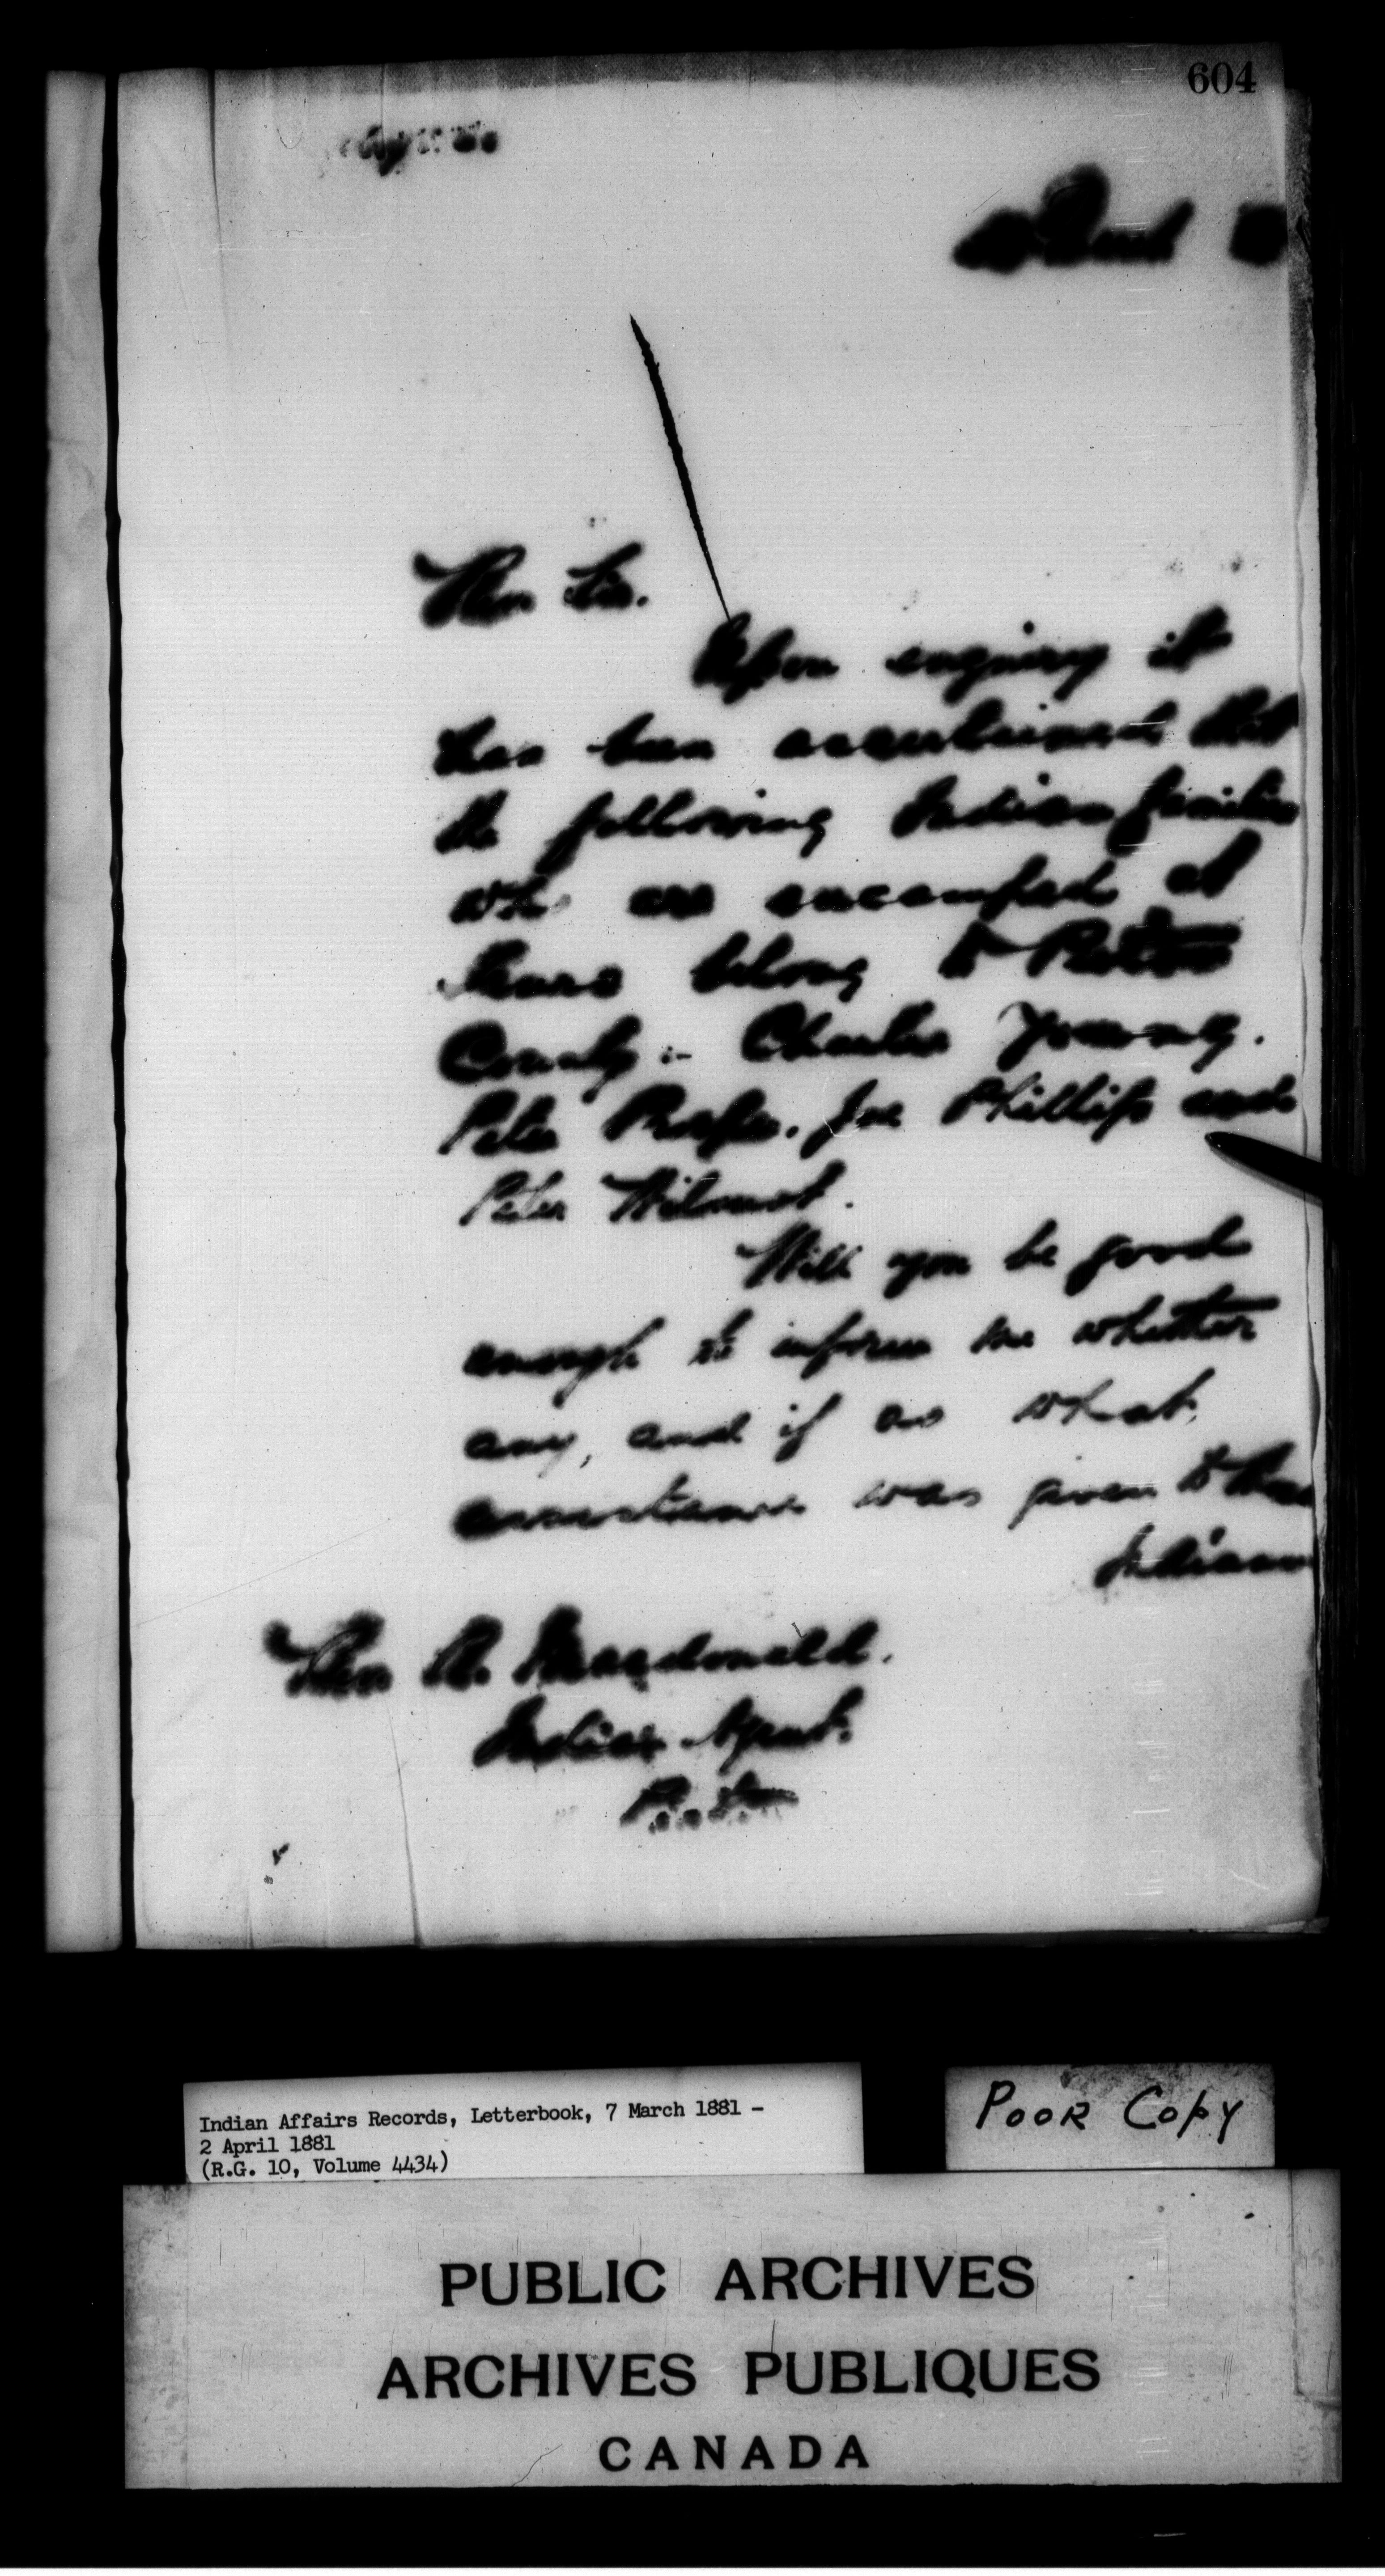 604
March
Sir.
Upon enquiry it
has been ascertained that
the following Indian families
who are encamped at
Truro belong to Pictou
County :- Charles Young.
Peter . Joe Phillips and
Peter Wilmot.
Will you be good
enough to inform me whether
any, and if so what
assistance was given to these
Indians
R. Macdonald.
Indian Agent.
Pictou
Indian Affairs Records, Letterbook, 7 March 1881 -
2 April 1881
(R.G. 10, Volume 4434)
POOR COPY
PUBLIC ARCHIVES
ARCHIVES PUBLIQUES
CANADA